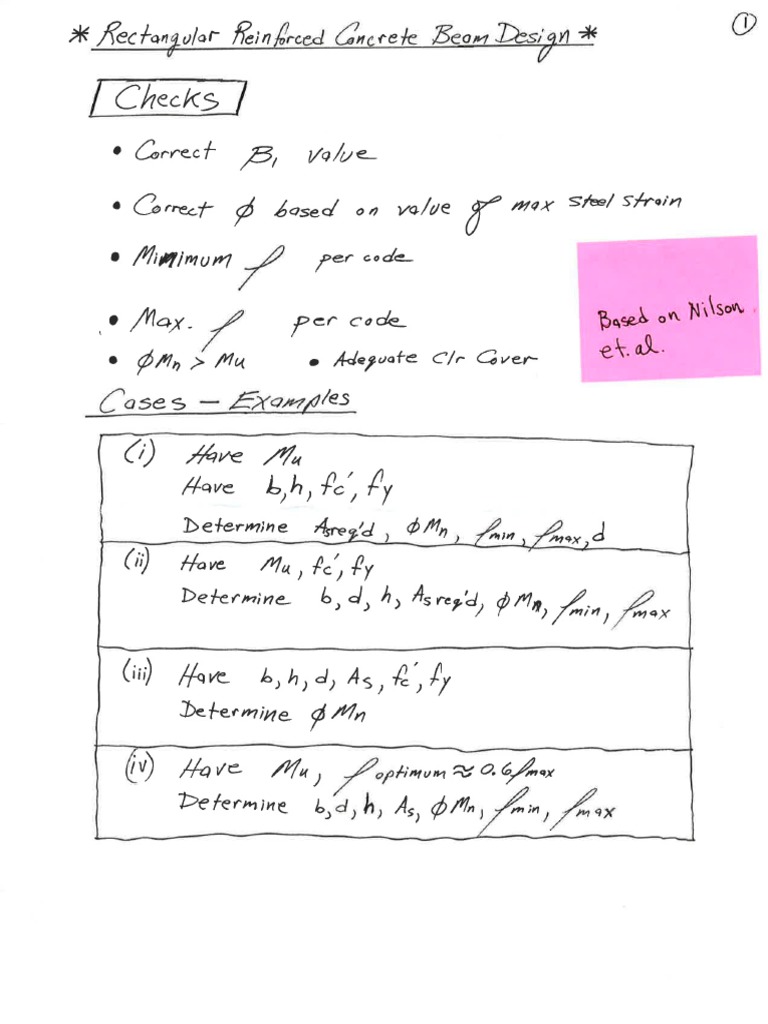 * Rectangular Reinforced Concrete Beam Design *
①
Checks
• Correct β₁ value
• Correct φ based on value of max steel strain
• Minimum ρ per code
• Max. ρ per code
• φMn > Mu • Adequate Clr Cover
Based on Nilson
et. al.
Cases – Examples
(i) Have Mu
Have b, h, fc', fy
Determine As req'd, φMn, ρmin, ρmax, d
(ii) Have Mu, fc', fy
Determine b, d, h, As req'd, φMn, ρmin, ρmax
(iii) Have b, h, d, As, fc', fy
Determine φMn
(iv) Have Mu, ρoptimum ≈ 0.6ρmax
Determine b, d, h, As, φMn, ρmin, ρmax